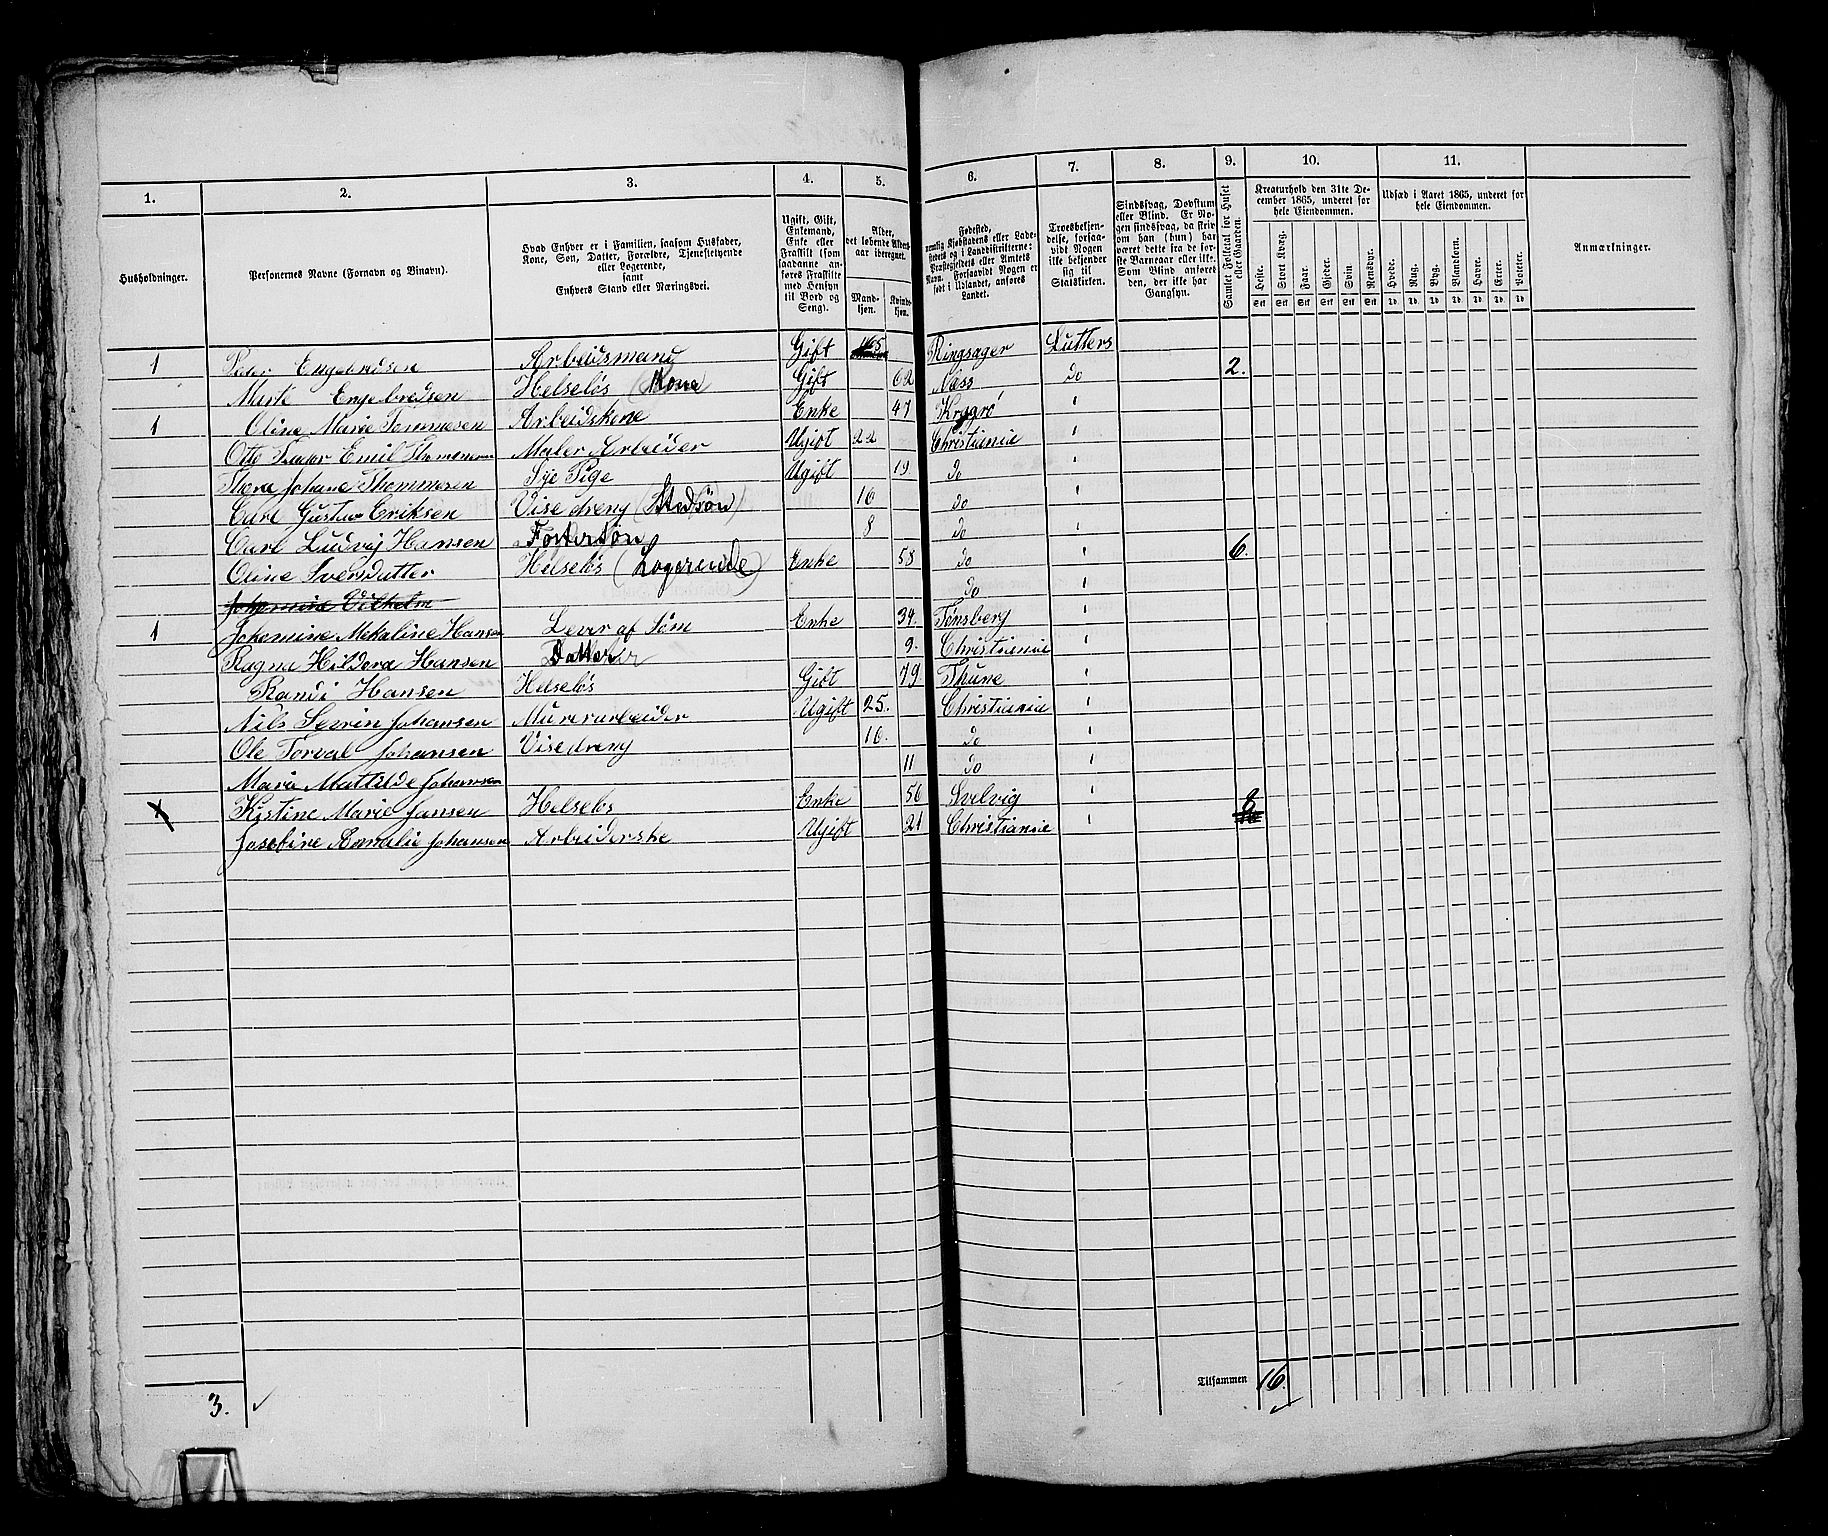 1. 2. 3. 4. 5. 6. 7. 8. 9. 10. 11.
Husholdninger.
Personernes Navne (Fornavn og Binavn).
Hvad Enhver er i Familien, saasom Husfader, Kone, Søn, Datter, Forældre, Tjenestetyende eller Logerende, samt Enhvers Stand eller Næringsvei.
Ugift, Gift, Enkemand, Enke eller Fraskilt (som saadanne anføres Fraskilte med Hensyn til Bord og Seng).
Alder, det løbende Aldersaar iberegnet.
Mandkjøn. Kvindekjøn.
Fødested, nemlig Kjøbstadens eller Ladestedets og i Landdistrikterne: Præstegjeldets eller Amtets Navn. Forsaavidt Nogen er født i Udlandet, anføres Landet.
Troesbekjendelse, forsaavidt Nogen ikke bekjender sig til Statskirken.
Sindssvag, Døvstum eller Blind. Er Nogen sindssvag, da skrives om han (hun) har været dette fra de første Barneaar eller ikke. Som Blind anføres den, der ikke har Gangsyn.
Samlet Folketal for Huset eller Gaarden.
Kreaturhold den 31te December 1865, underet for hele Eiendommen.
Heste. Stort Kvæg. Faar. Gjeder. Svin. Rensdyr.
Udsæd i Aaret 1865, underet for hele Eiendommen.
Hvede. Rug. Byg. Blandkorn. Havre. Erter. Poteter.
Anmærkninger.
1 Peder Engebredsen Arbeidsmand Gift 65 Ringsager Lutters
Marte Engebredsen Helseløs (Kone) Gift 62 Næss do 2.
1 Oline Marie Tommesen Arbeidskone Enke 47 Kragrø "
Otto Emil Thommesen Maler Arbeider Ugift 22 Christiania "
Thora Johane Thommesen Sye Pige Ugift 19 do "
Carl Gustav Eriksen Visedreng (Stedsøn) 16 do "
Carl Ludvig Hansen Fostersøn 8 do "
Oline Svensdatter Helseløs (Logerende) Enke 58 do " 6.
Johannine Vilhelm do "
1 Johannine Mekaline Hansen Lever af Søm Enke 34. Tønsberg "
Ragna Hildora Hansen Datter 9. Christiania "
Randi Hansen Helseløs Gift 79 Thune "
Nils Severin Johansen Murerarbeider Ugift 25. Christiania "
Ole Torval Johansen Visedreng 16. do "
Marie Mathilde Johansen 11 do "
x Kistine Marie Jansen Helseløs Enke 56 Svelvig " 8
Josefine Amalie Johansen Arbeiderske Ugift 21 Christiania "
3. Tilsammen 16.